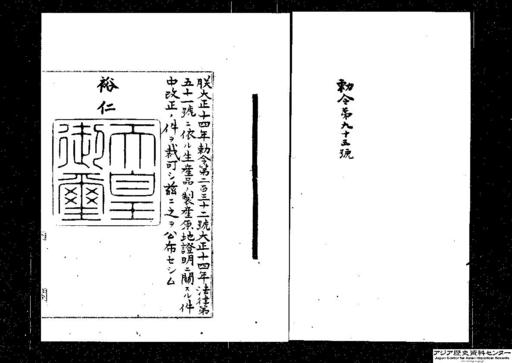 勅令第九十五號
朕大正十四年勅令第二百三十二號大正十四年法律第
五十一號ニ依ル生産品ノ製産原地證明ニ關スル件
中改正ノ件ヲ裁可シ茲ニ之ヲ公布セシム
裕仁
天皇
御璽
アジア歴史資料センター
Japan Center for Asian Historical Records